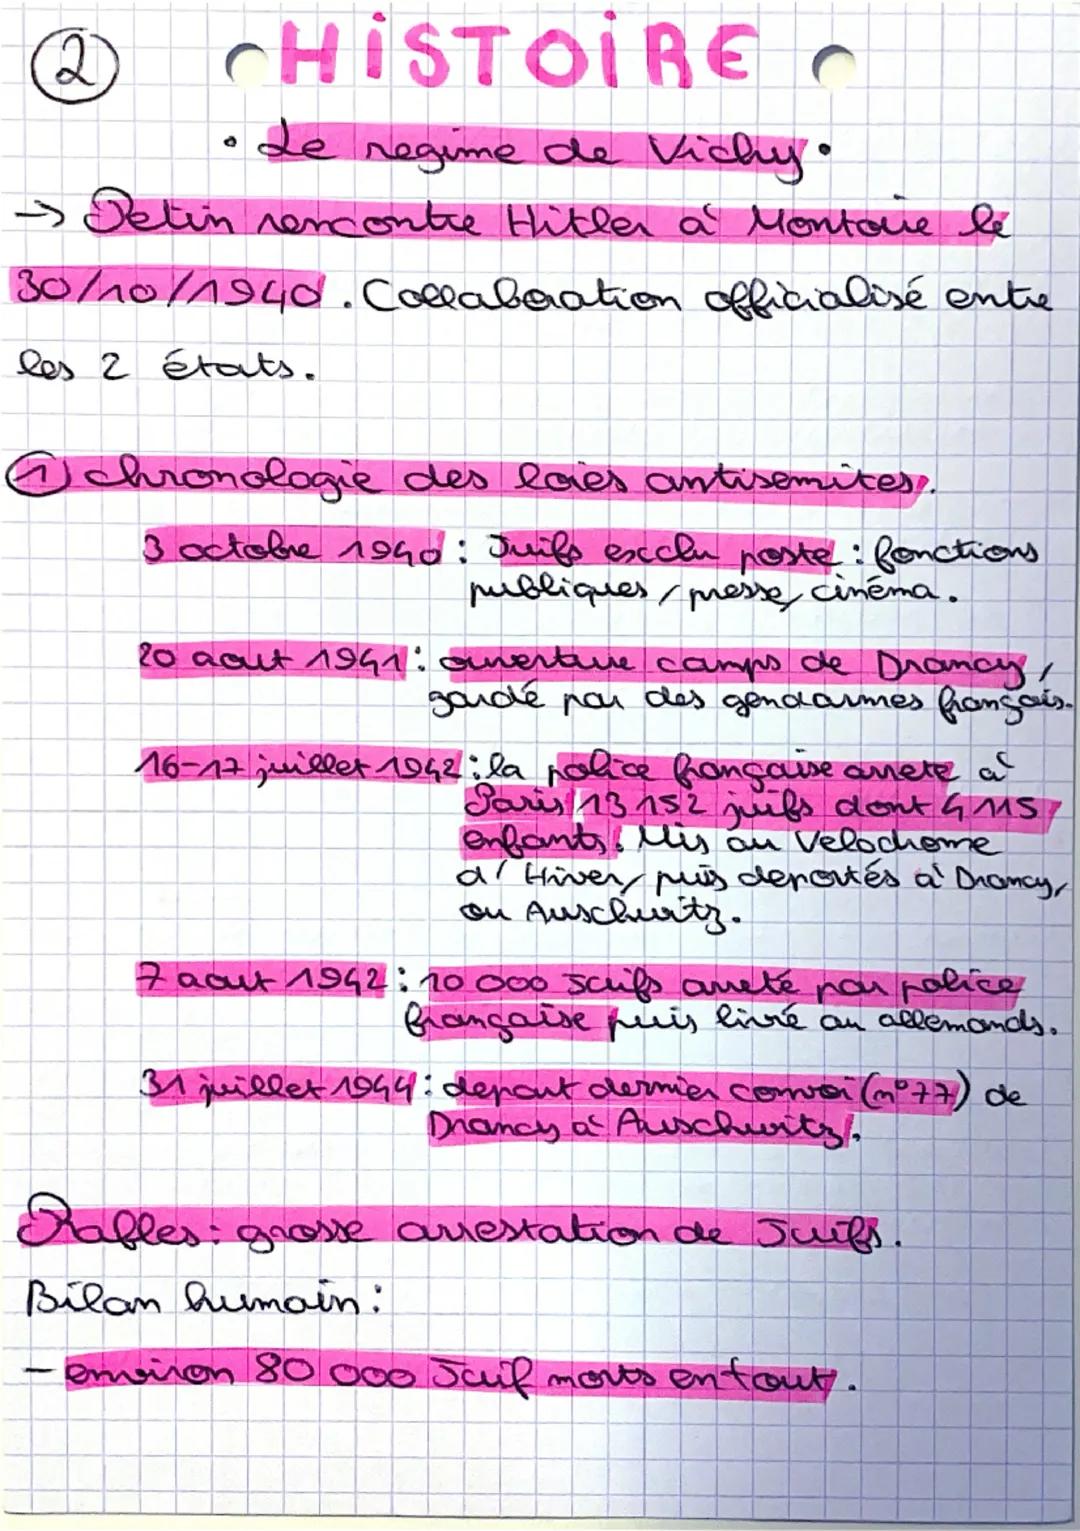 ②
HiSTOiRE
• Le regime de Vichy •
-> Petin rencontre Hitler à Montoire le
30/10/1940. Collaboration officialisé entre
les 2 états.
① chronologie des loies antisemites.
3 octobre 1940 : Juifs exclu poste : fonctions
publiques, presse, cinéma.
20 aout 1941 : ouverture camps de Drancy,
gardé par des gendarmes français.
16-17 juillet 1942 : la police française arrete à
Paris 13 152 juifs dont 4 115
enfants. Mis au Velodrome
d'Hiver, puis deportés à Drancy,
ou Auschwitz.
7 aout 1942 : 10 000 Juifs arreté par police
française puis livré au allemands.
31 juillet 1944 : depart dernier convoi (n°77) de
Drancy à Auschwitz.
Rafles : grosse arrestation de Juifs.
Bilan humain :
- environ 80 000 Juif morts en tout.